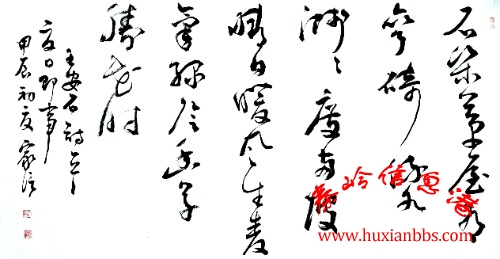 石梁茅屋有
弯碕流水
溅溅度两陂
晴日暖风生麦
氣绿阴幽草
勝花时
王安石詩
夏日即事
甲辰初夏家信
信息港
www.huxianbbs.com